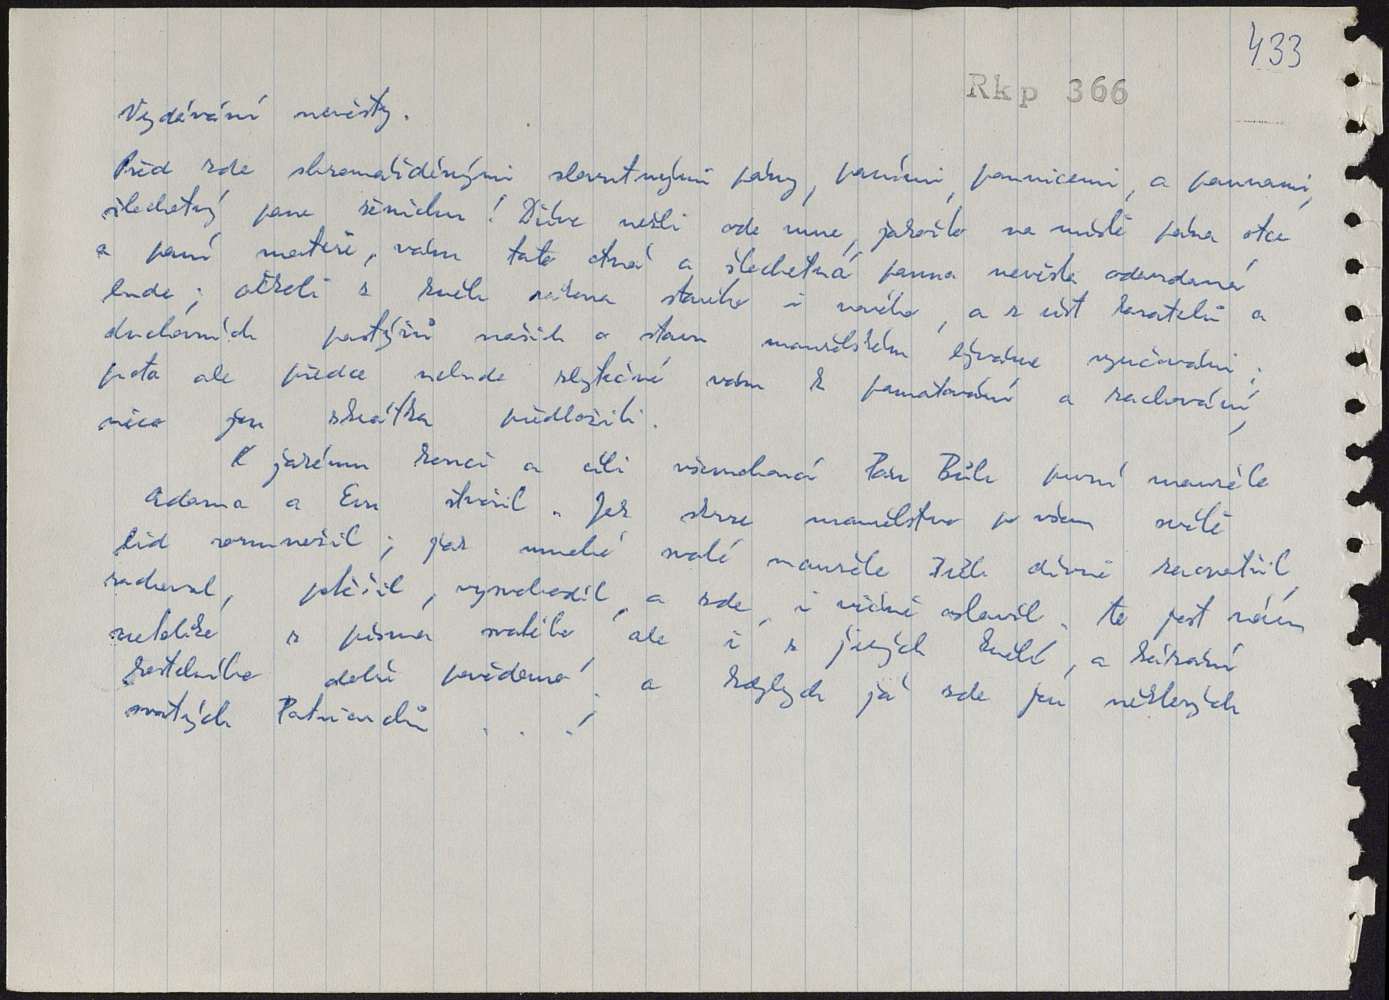 433
Rkp 366
Vydávání nevěsty.
Před zde shromážděnými slovutnými pány, paními, pannicemi, a pannami,
šlechetný pane ženichu! Dříve nežli ode mne, jakožto na místě pána otce
a paní mateře, vám tato ctná a šlechetná panna nevěsta odevzdaná
bude; ačkoli z knih zákona starého i nového, a z úst kazatelů a
duchovních pastýřů našich o stavu manželském býváme vyučováni;
proto ale předce nebude zbytečné vám k pamatování a zachování,
něco jen zkrátka předložiti.
K jakému konci a cíli všemohoucí Pán Bůh první manžele
Adama a Evu stvořil. Jak skrze manželstvo po všem světě
lid rozmnožil; jak mnohé svaté manžele Bůh divně zaopatřil,
zachoval, potěšil, vysvobodil, a zde, i věčně oslavil. to jest nám
netoliko z písma svatého ale i z jiných knih, a kázání
kostelního dobře povědomo; a kdybych já zde jen některých
svatých Patriarchů . . . /